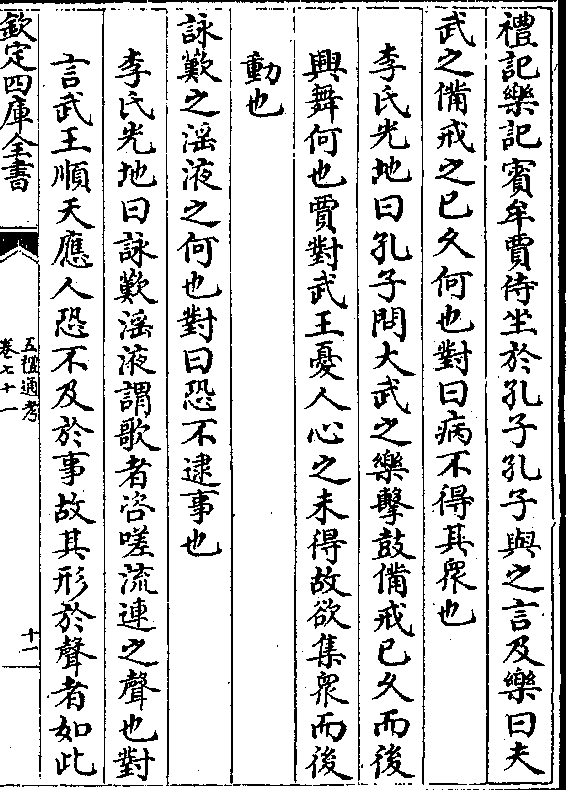 禮記樂記賓牟賈侍坐於孔子孔子與之言及樂曰夫
武之備戒之已久何也對曰病不得其衆也
李氏光地曰孔子問大武之樂擊鼓備戒已久而後
興舞何也賈對武王憂人心之未得故欲集衆而後
動也
詠歎之淫液之何也對曰恐不逮事也
李氏光地曰詠歎淫液謂歌者咨嗟流連之聲也對
言武王順天應人恐不及於事故其形於聲者如此
欽定四庫全書
五禮通考
卷七十一
十一